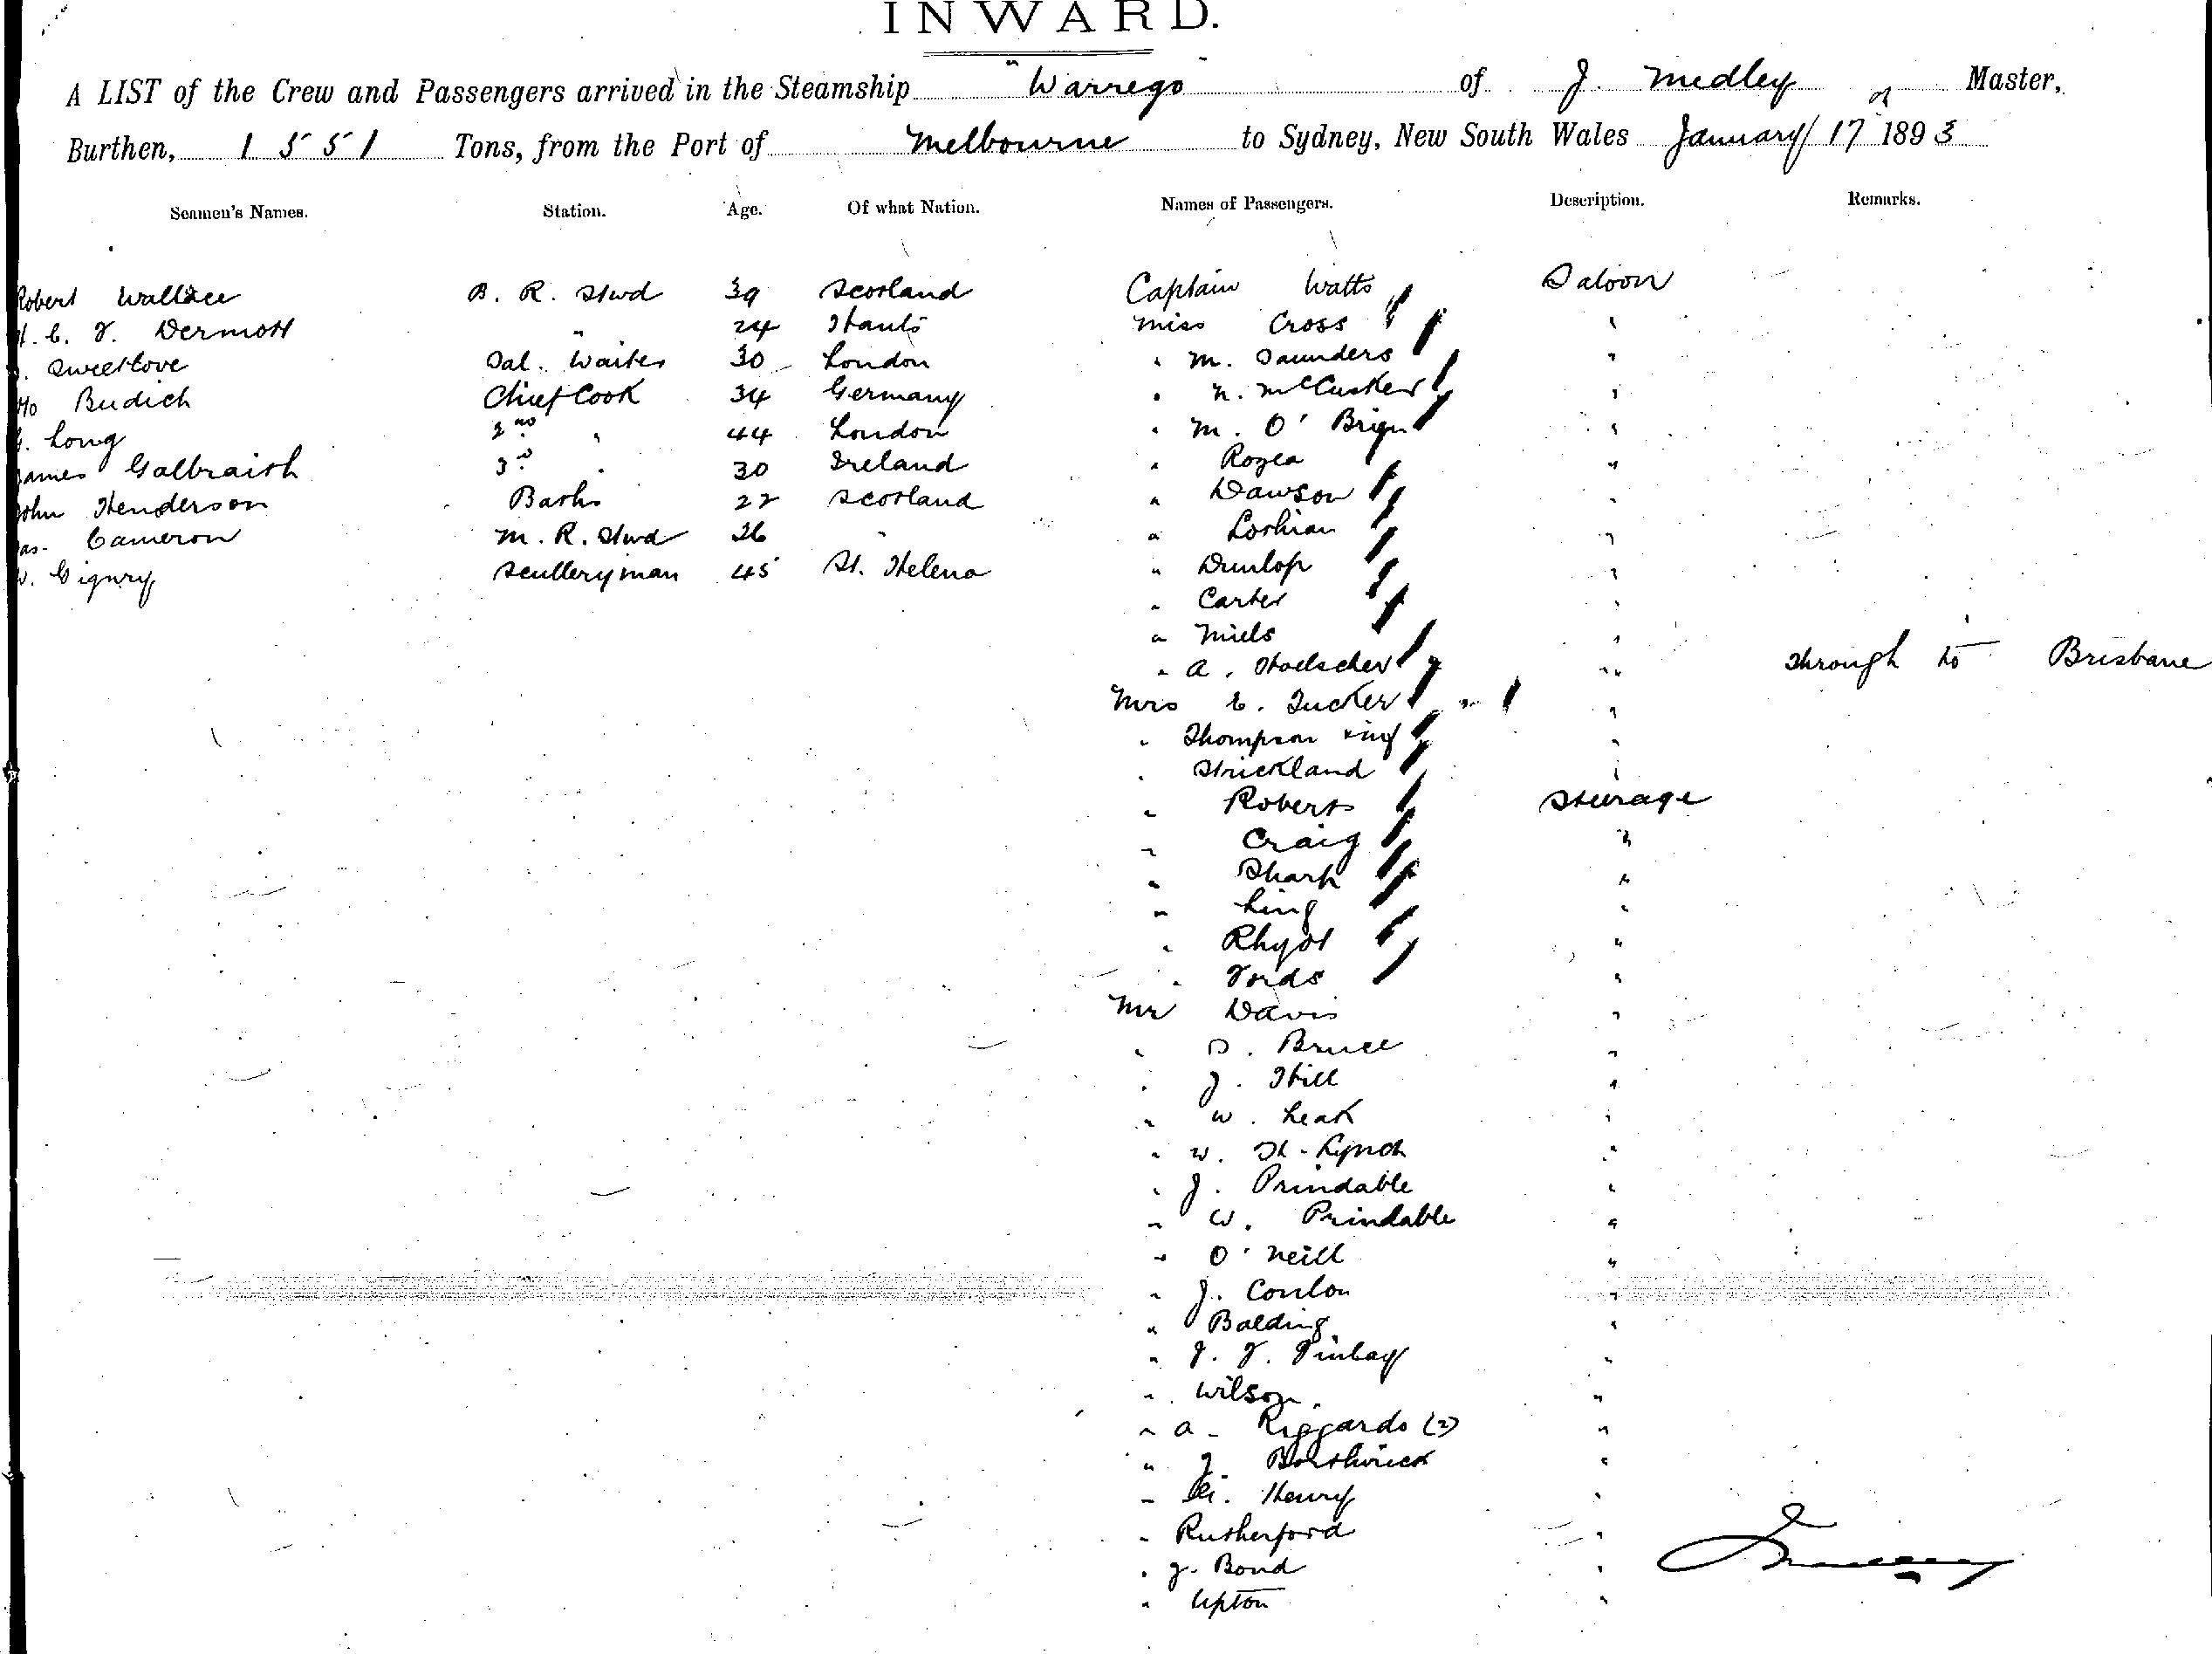 INWARD.
A LIST of the Crew and Passengers arrived in the Steamship "Warrego" of J. Medley Master,
Burthen, 1551 Tons, from the Port of Melbourne to Sydney, New South Wales January 17 1893
Seamen's Names. Station. Age. Of what Nation. Names of Passengers. Description. Remarks.
Robert Wallace B. R. Stwd 39 Scotland Captain Watts Saloon
Dermott " 24 Hants Miss Cross "
Sweetlove Sal. Waiter 30 London " M. Saunders "
Budich Chief Cook 34 Germany " N. McCusker "
Long 2nd " 44 London " M. O'Brien "
James Galbraith 3rd " 30 Ireland " "
John Henderson Baths 22 Scotland " Dawson "
Cameron M. R. Stwd 26 " " Lothian "
Scullery man 45 St. Helena " Dunlop "
" Carter "
" Miels "
" A. Hoelscher " Through to Brisbane
Mrs E. Tucker "
" Thompson King "
" Strickland "
" Roberts Steerage
" Craig "
" Sharp "
" King "
" "
" Fords "
Mr Davis "
" D. Bruce "
" J. Hill "
" W. Leak "
" W. H. Lynch "
" J. Prindable "
" W. Prindable "
" O'Neill "
" J. Conlon "
" Balding "
" J. F. Finlay "
" Wilson "
" A. Riggards (2) "
" J. Borthwick "
" Henry "
" Rutherford "
" J. Bond "
" Upton "